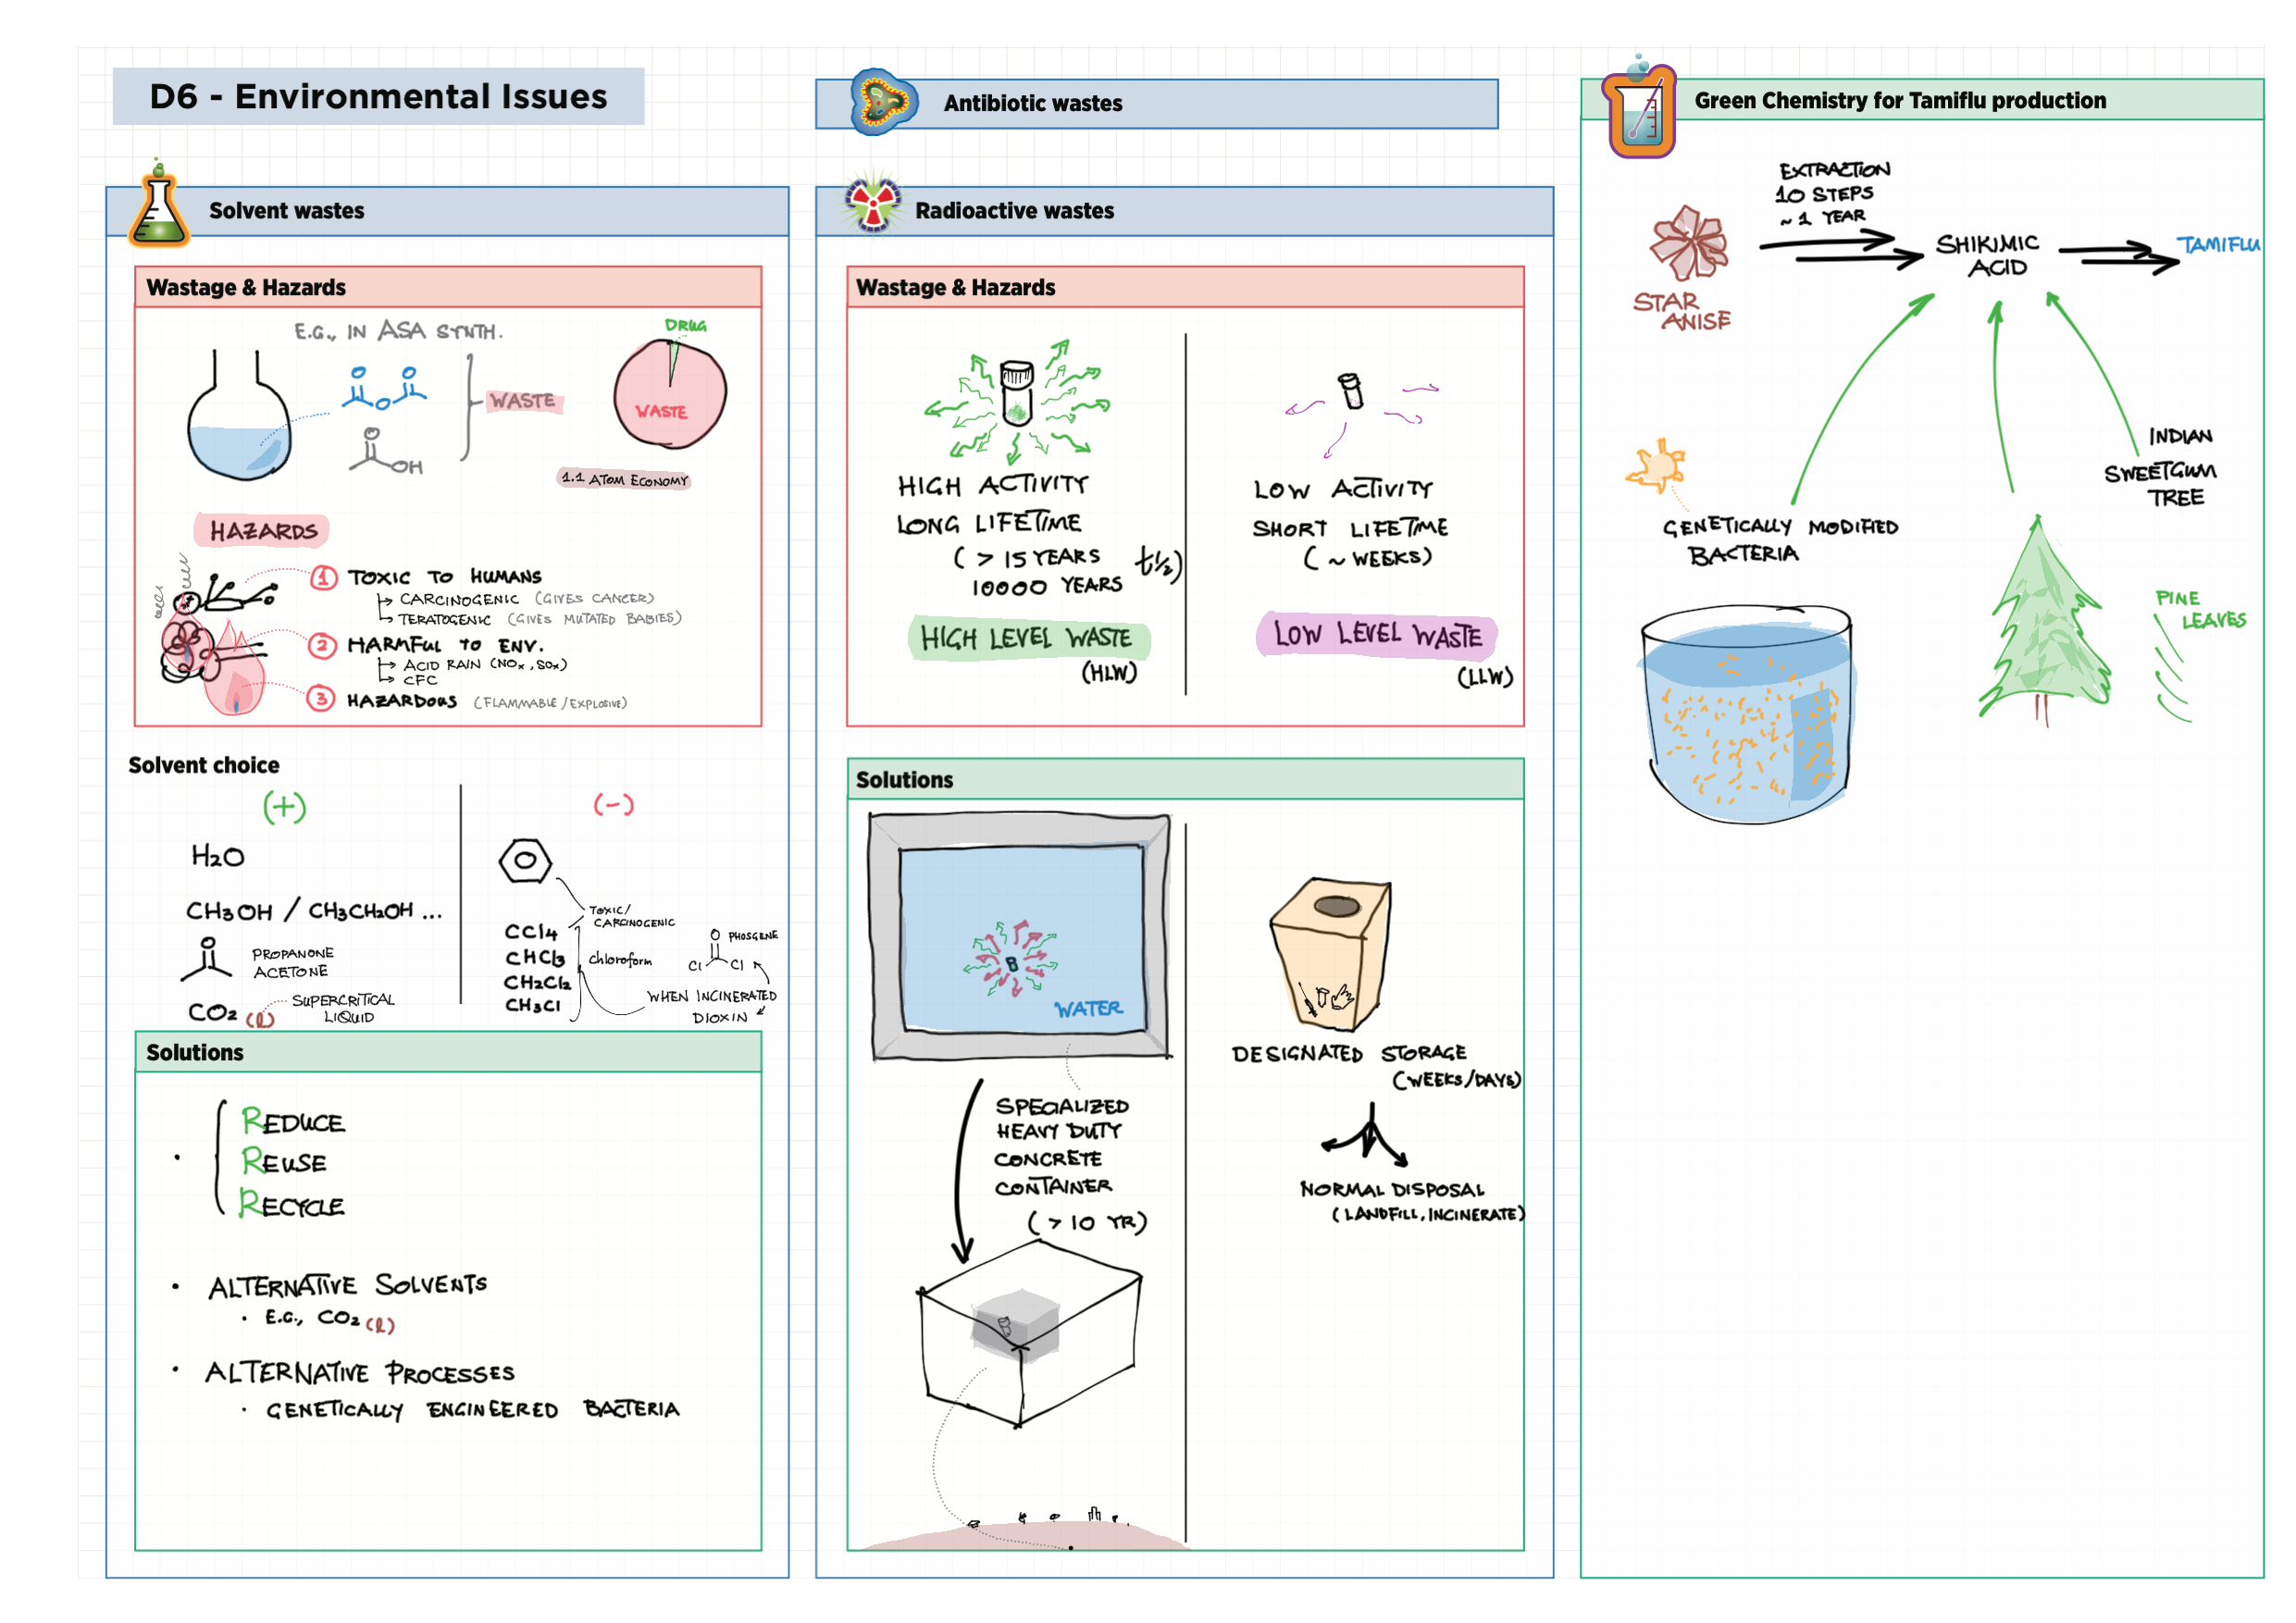 D6 - Environmental Issues
Solvent wastes
Wastage & Hazards
E.G., IN ASA SYNTH.
DRUG
WASTE
WASTE
OH
1.1 ATOM ECONOMY
HAZARDS
1 TOXIC TO HUMANS
CARCINOGENIC (GIVES CANCER)
TERATOGENIC (GIVES MUTATED BABIES)
2 HARMFUL TO ENV.
ACID RAIN (NOx, SOx)
CFC
3 HAZARDOUS (FLAMMABLE/EXPLOSIVE)
Solvent choice
(+)
(-)
H2O
CH3OH / CH3CH2OH ...
O
PROPANONE
ACETONE
CO2 (l)
SUPERCRITICAL
LIQUID
TOXIC/
CARCINOGENIC
CCl4
CHCl3
chloroform
CH2Cl2
CH3Cl
O
PHOSGENE
Cl Cl
WHEN INCINERATED
DIOXIN
Solutions
• REDUCE
REUSE
RECYCLE
• ALTERNATIVE SOLVENTS
• E.G., CO2 (l)
• ALTERNATIVE PROCESSES
• GENETICALLY ENGINEERED BACTERIA
Antibiotic wastes
Radioactive wastes
Wastage & Hazards
HIGH ACTIVITY
LONG LIFETIME
( > 15 YEARS t1/2)
10000 YEARS
HIGH LEVEL WASTE
(HLW)
LOW ACTIVITY
SHORT LIFETIME
( ~ WEEKS)
LOW LEVEL WASTE
(LLW)
Solutions
WATER
SPECIALIZED
HEAVY DUTY
CONCRETE
CONTAINER
( > 10 YR)
DESIGNATED STORAGE
(WEEKS/DAYS)
NORMAL DISPOSAL
(LANDFILL, INCINERATE)
Green Chemistry for Tamiflu production
EXTRACTION
10 STEPS
~ 1 YEAR
STAR
ANISE
SHIKIMIC
ACID
TAMIFLU
INDIAN
SWEETGUM
TREE
GENETICALLY MODIFIED
BACTERIA
PINE
LEAVES